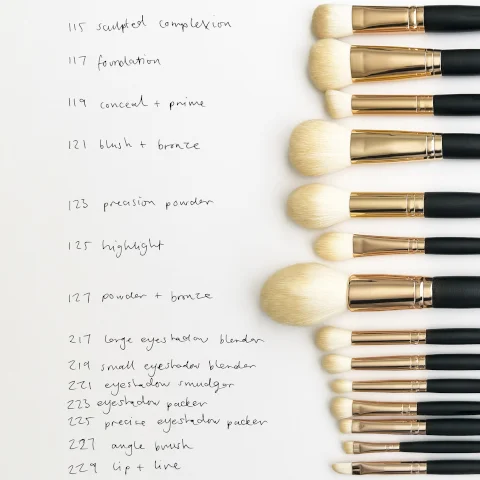 115 sculpted complexion
117 foundation
119 conceal + prime
121 blush + bronze
123 precision powder
125 highlight
127 powder + bronze
217 large eyeshadow blender
219 small eyeshadow blender
221 eyeshadow smudger
223 eyeshadow packer
225 precise eyeshadow packer
227 angle brush
229 lip + line